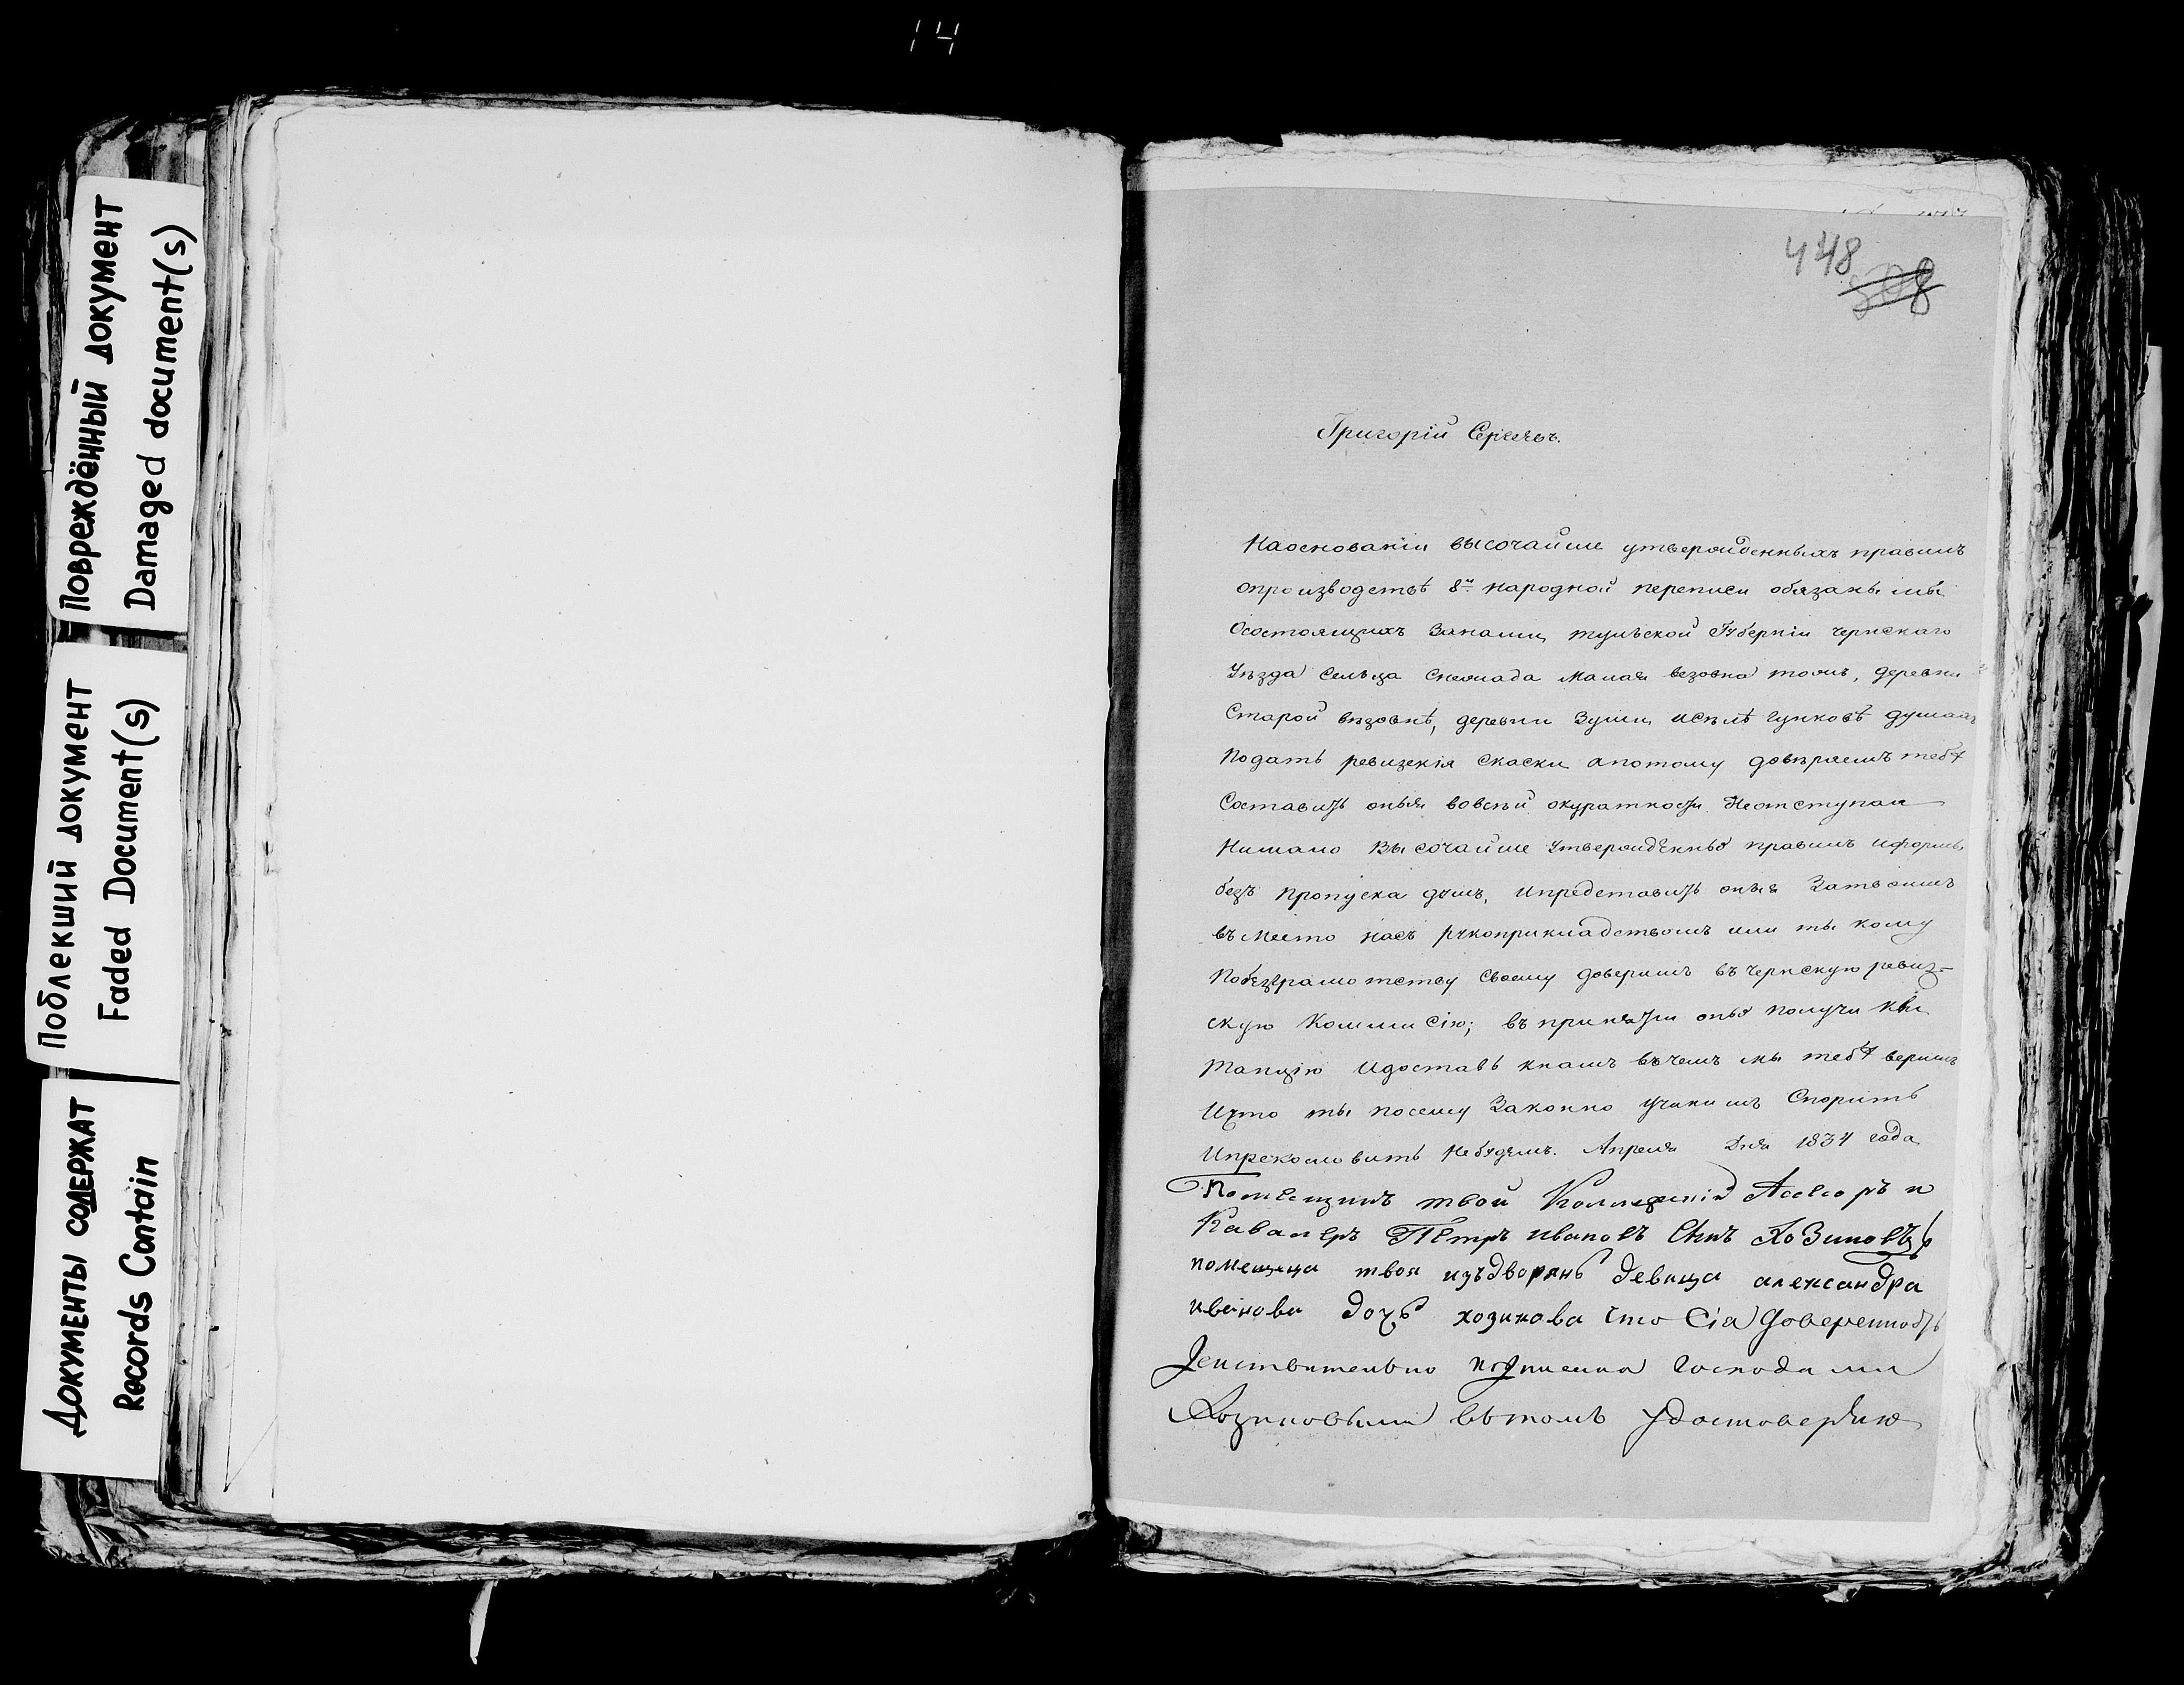 14
Повреждённый документ
Damaged document(s)
Поблекший документ
Faded Document(s)
Документы содержат
Records Contain
448
Григорій Сергѣевъ.
Наоснованіи высочайше утвержденныхъ правилъ
опроизводствѣ 8й народной переписи обязаны мы
Осостоящихъ Занами тульской Губерніи чернскаго
Уѣзда Сельца Малая везовна тожъ, деревни
Старой вѣзовнѣ, деревни Зуши, исѣлѣ душахъ
Подать ревизскія Скаски апотому довѣряемъ тебѣ
Составить оныя вовсѣй окуратности Неотступая
Нимало Высочайше Утвержденныхъ правилъ иформы
безъ пропуска душъ, ипредставить оныя Затвоимъ
въместо насъ рукоприкладствомъ или ты кому
Побезграмотству Своему доверишъ въ чернскую ревиз-
скую Коммисію; въ принятіи оныхъ получи кви
танцію Идоставь кнамъ въчемъ мы тебѣ веримъ
Ичто ты посему Законно учинишъ Споритъ
Ипрекословить Небудемъ. Апреля Дня 1834 года
Помещикъ твой Коллежскій Асесоръ и
Кавалеръ Петръ ивановъ Сынъ Хозиковъ
помещица твоя изъдворянъ девица александра
иванова дочь хозикова что Сія доверенность
действительно подписана Господами
Хозиковыми вътомъ удостоверяю